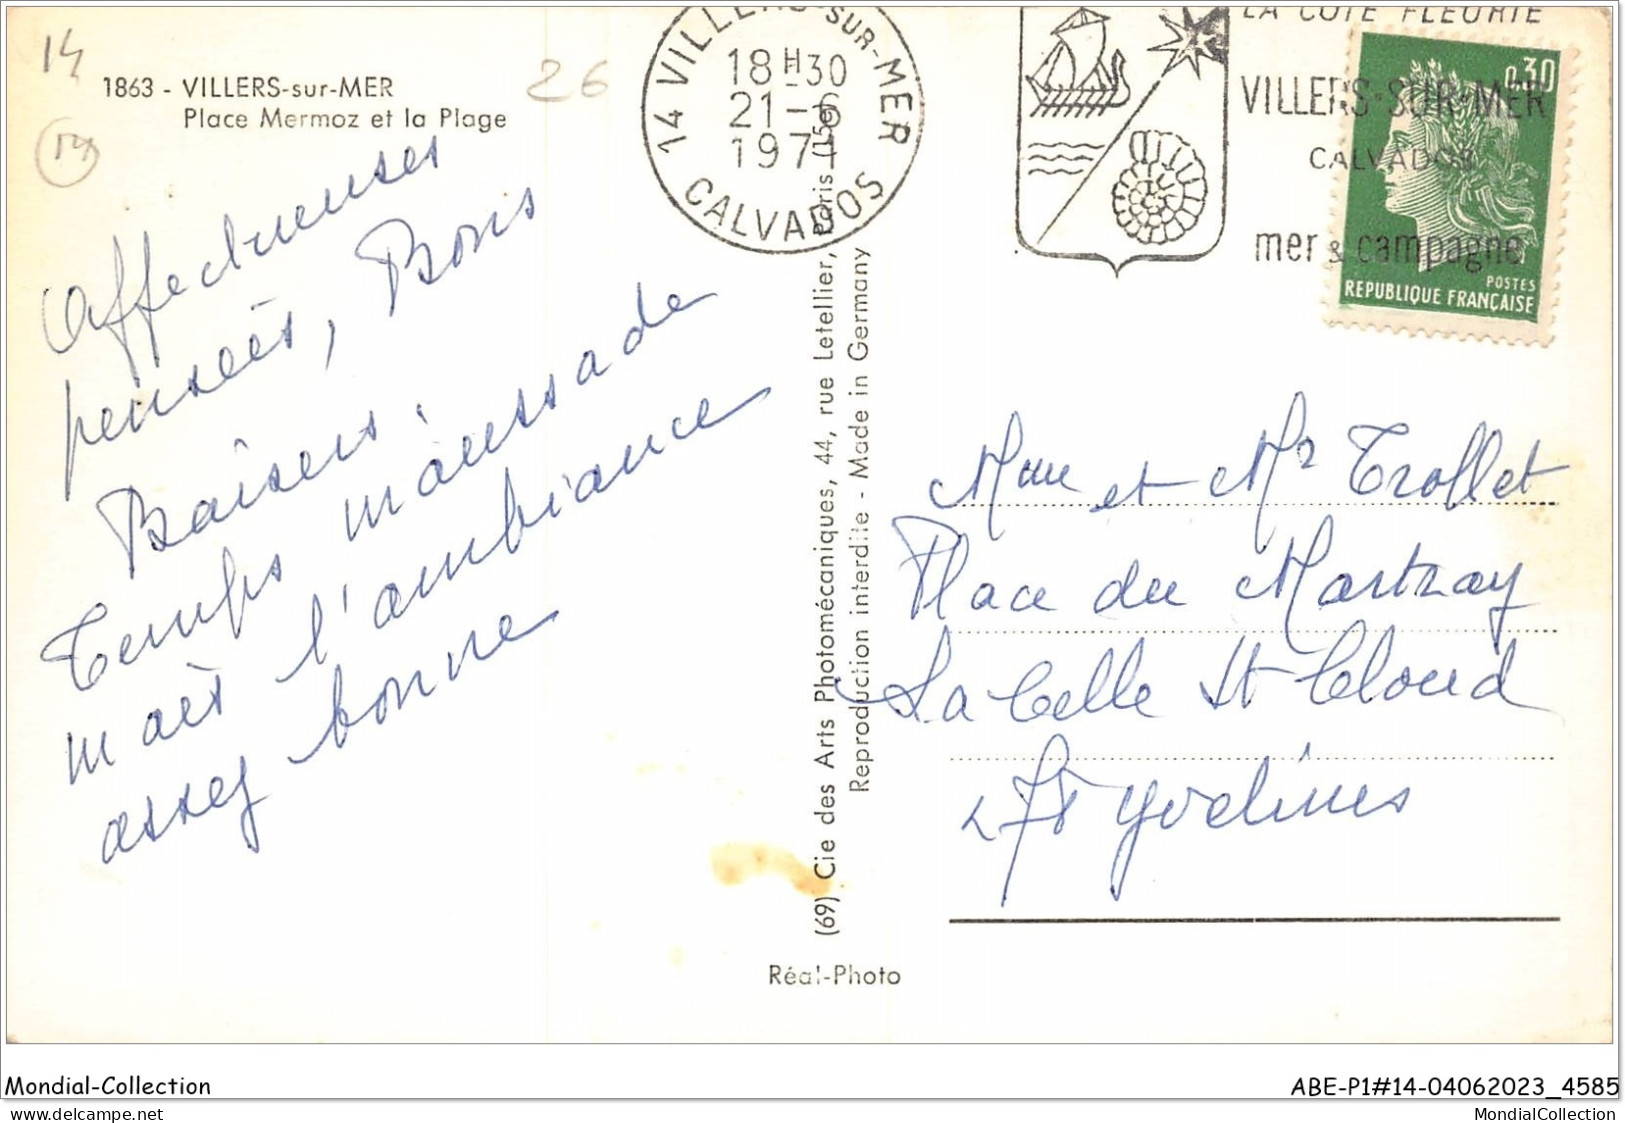 14
26
1863 - VILLERS-sur-MER
Place Mermoz et la Plage
14
Affectueuses
pensées, Boris
Baisers.
Temps maussade
mais l'ambiance
assez bonne
14 VILLERS-SUR-MER
18H30
21-6
1971
CALVADOS
LA COTE FLEURIE
VILLERS-SUR-MER
CALVADOS
mer & campagne
0,30
POSTES
REPUBLIQUE FRANÇAISE
(69) Cie des Arts Photomécaniques, 44, rue Letellier, Paris (15e)
Reproduction interdite - Made in Germany
Mme et Mr Trollet
Place du Martray
La Celle St Cloud
78 Yvelines
Réal-Photo
Mondial-Collection
ABE-P1#14-04062023_4585
delcampe.net
MondialCollection